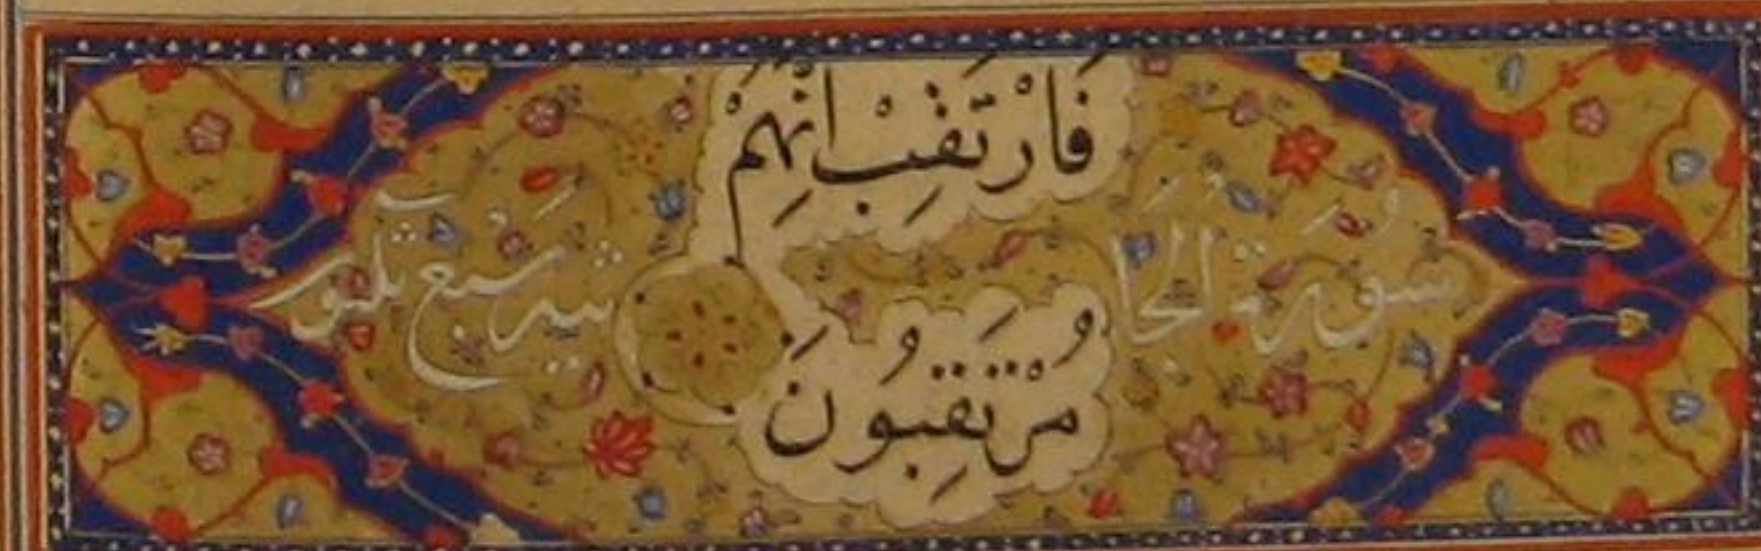 فَارْتَقِبْ اِنَّهُمْ
مُرْتَقِبُونَ
سُورَةُ الجاثية سبع